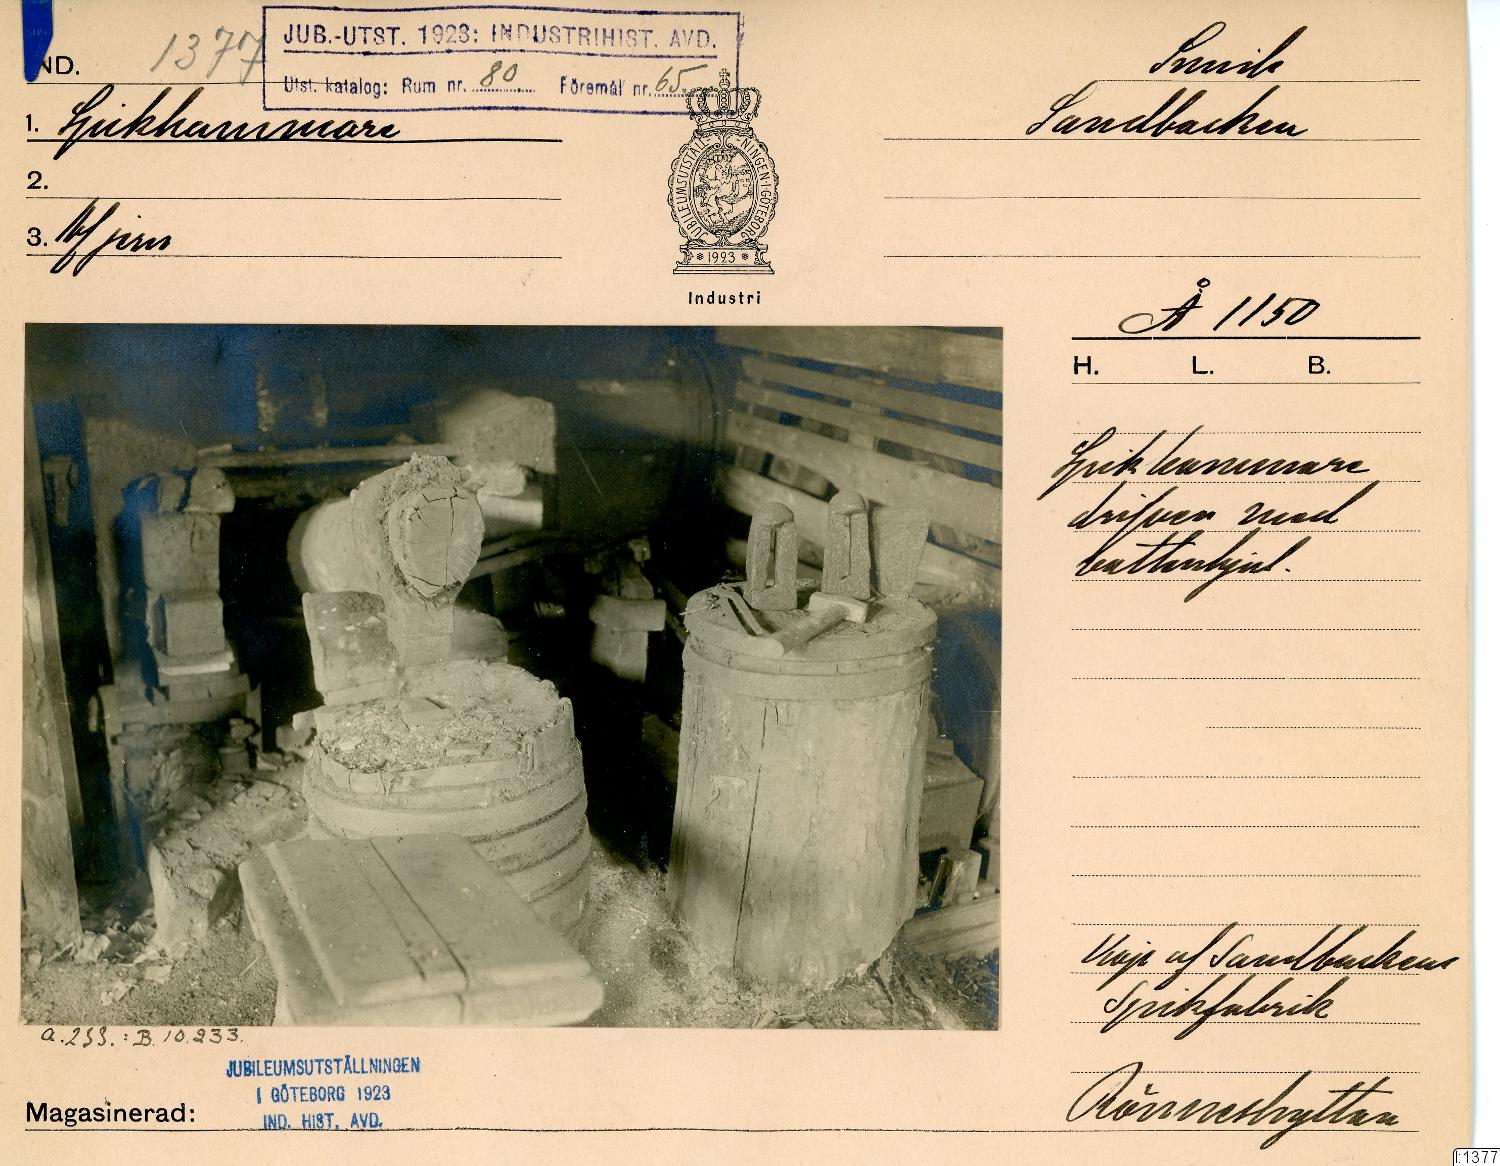 IND. 1377
JUB.-UTST. 1923: INDUSTRIHIST. AVD.
Utst. katalog: Rum nr. 80 Föremål nr. 65
1. Spikhammare
2.
3. Af jern
JUBILEUMSUTSTÄLLNINGEN I GÖTEBORG
* 1923 *
Industri
Sandbacken
Å 1150
H. L. B.
Spikhammare
drifven med
vattenhjul.
af Sandbackens
Spikfabrik
Rönneshyttan
a.233.:B.10.233.
JUBILEUMSUTSTÄLLNINGEN
I GÖTEBORG 1923
IND. HIST. AVD.
Magasinerad:
I:1377